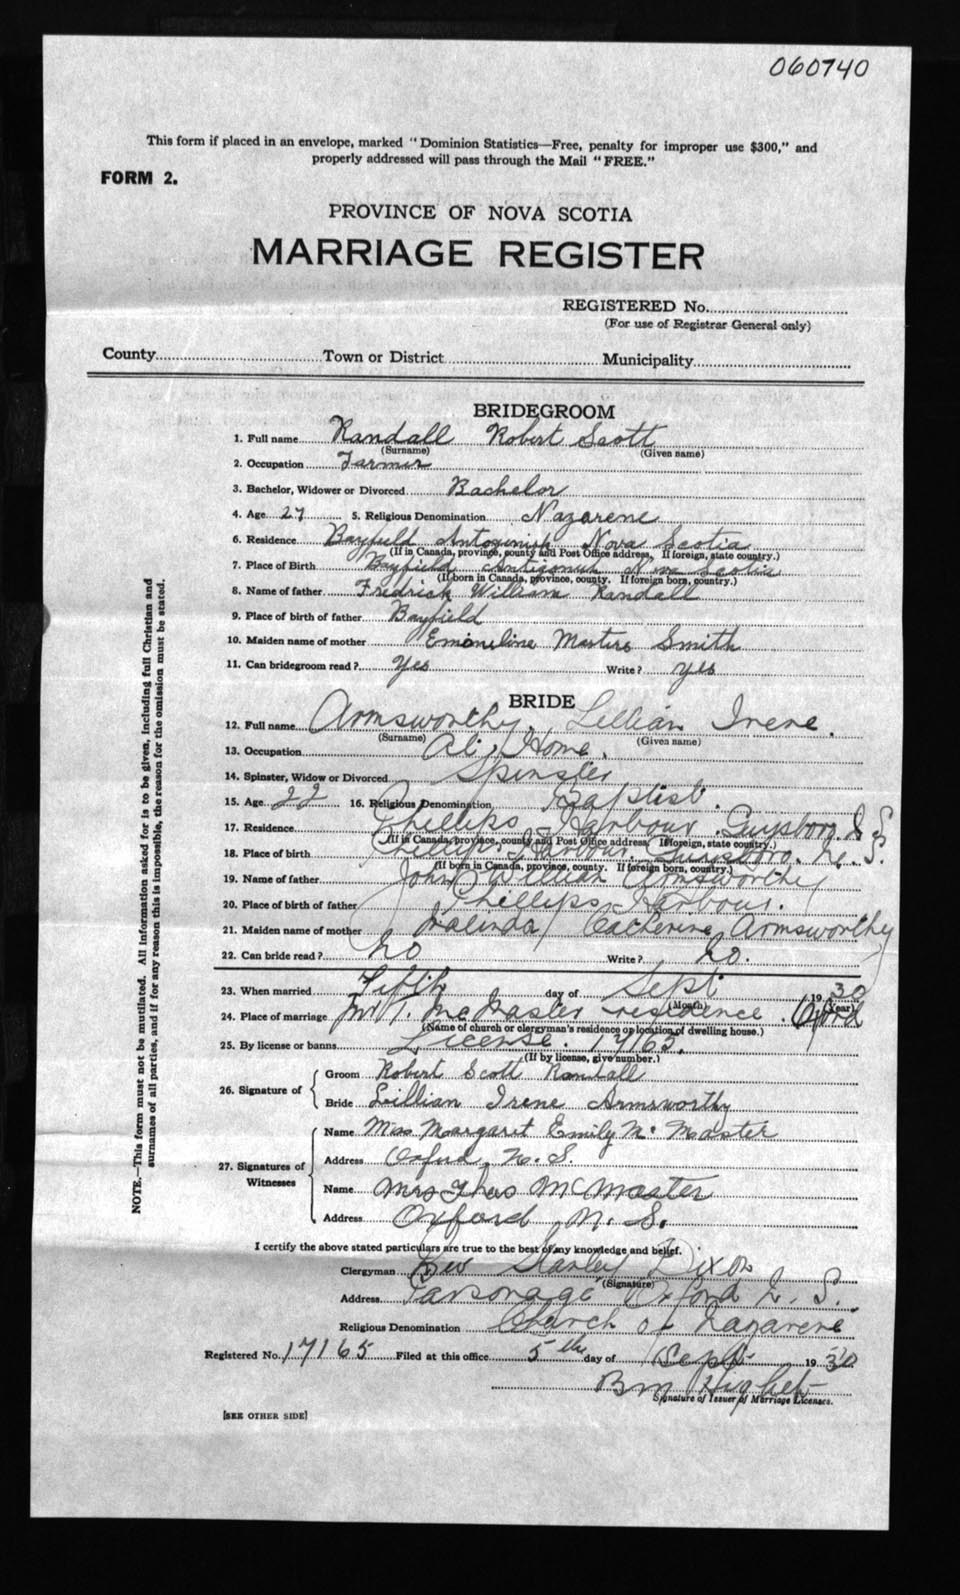 060740
This form if placed in an envelope, marked "Dominion Statistics—Free, penalty for improper use $300," and
properly addressed will pass through the Mail "FREE."
FORM 2.
PROVINCE OF NOVA SCOTIA
MARRIAGE REGISTER
REGISTERED No.
(For use of Registrar General only)
County Town or District Municipality
BRIDEGROOM
1. Full name Randall Robert Scott
(Surname) (Given name)
2. Occupation Farmer
3. Bachelor, Widower or Divorced Bachelor
4. Age 27 5. Religious Denomination Nazarene
6. Residence Bayfield Antigonish Nova Scotia
(If in Canada, province, county and Post Office address, If foreign, state country.)
7. Place of Birth Bayfield Antigonish Nova Scotia
(If born in Canada, province, county. If foreign born, country.)
8. Name of father Fredrick William Randall
9. Place of birth of father Bayfield
10. Maiden name of mother Smith
11. Can bridegroom read? Yes Write? yes
BRIDE
12. Full name Armsworthy. Lillian Irene.
(Surname) (Given name)
13. Occupation At Home.
14. Spinster, Widow or Divorced Spinster
15. Age 22 16. Religious Denomination Baptist.
17. Residence Phillips Harbour. Guysboro. N S
(If in Canada, province, county and Post Office address, If foreign, state country.)
18. Place of birth Phillips Harbour Guysboro. N. S.
(If born in Canada, province, county. If foreign born, country.)
19. Name of father John William Armsworthy
20. Place of birth of father Phillips Harbour.
21. Maiden name of mother Malinda Catherine Armsworthy
22. Can bride read? No Write? No.
23. When married Fifth day of Sept 1930
(Month) (Year)
24. Place of marriage Mr T. McMaster residence. Oxford
(Name of church or clergyman's residence or location of dwelling house.)
25. By license or banns License. 17165.
(If by license, give number.)
26. Signature of
Groom Robert Scott Randall
Bride Lillian Irene Armsworthy
27. Signatures of Witnesses
Name Miss Margaret Emily Mc Master
Address Oxford, N. S.
Name Mrs Thos McMaster
Address Oxford N. S.
I certify the above stated particulars are true to the best of my knowledge and belief.
Clergyman Rev Stanley Dixon
(Signature)
Address Parsonage Oxford N. S.
Religious Denomination Church of Nazarene
Registered No. 17165 Filed at this office 5th day of Sept 1930
B M
Signature of Issuer of Marriage Licenses.
[SEE OTHER SIDE]
NOTE.—This form must not be mutilated. All information asked for is to be given, including full Christian and
surnames of all parties, and if for any reason this is impossible, the reason for the omission must be stated.